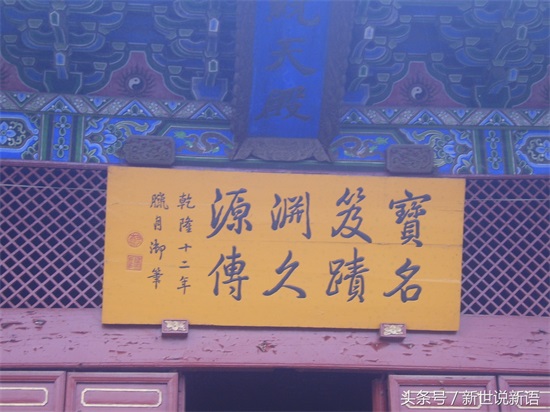 天殿
寶笈淵源
名蹟久傳
乾隆十二年
臘月御筆
头条号/新世说新语